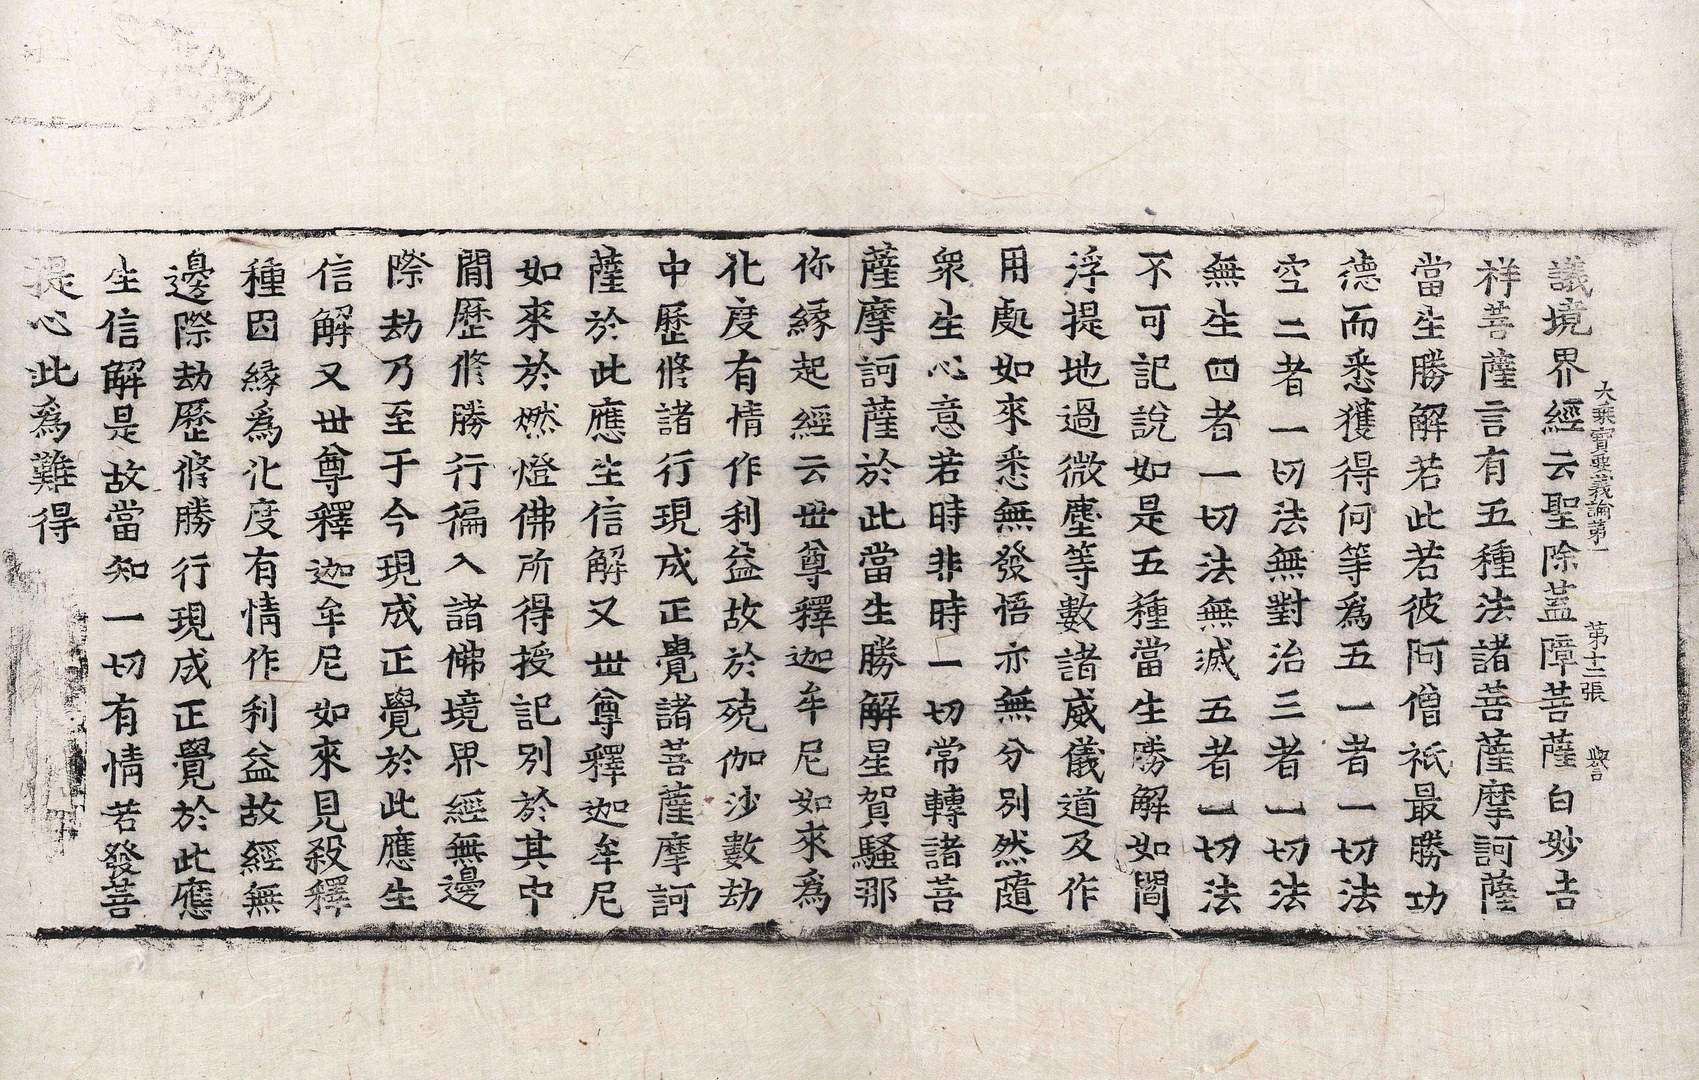 大乘寶要義論第一 第十二張
議境界經云聖除蓋障菩薩白妙吉
祥菩薩言有五種法諸菩薩摩訶薩
當生勝解若此若彼阿僧祇最勝功
德而悉獲得何等爲五一者一切法
空二者一切法無對治三者一切法
無生四者一切法無滅五者一切法
不可記說如是五種當生勝解如閻
浮提地過微塵等數諸威儀道及作
用處如來悉無發悟亦無分別然隨
衆生心意若時非時一切常轉諸菩
薩摩訶薩於此當生勝解星賀騷那
你緣起經云世尊釋迦牟尼如來爲
化度有情作利益故於殑伽沙數劫
中歷修諸行現成正覺諸菩薩摩訶
薩於此應生信解又世尊釋迦牟尼
如來於燃燈佛所得授記別於其中
閒歷修勝行徧入諸佛境界經無邊
際劫乃至于今現成正覺於此應生
信解又世尊釋迦牟尼如來見殺釋
種因緣爲化度有情作利益故經無
邊際劫歷修勝行現成正覺於此應
生信解是故當知一切有情若發菩
提心此爲難得